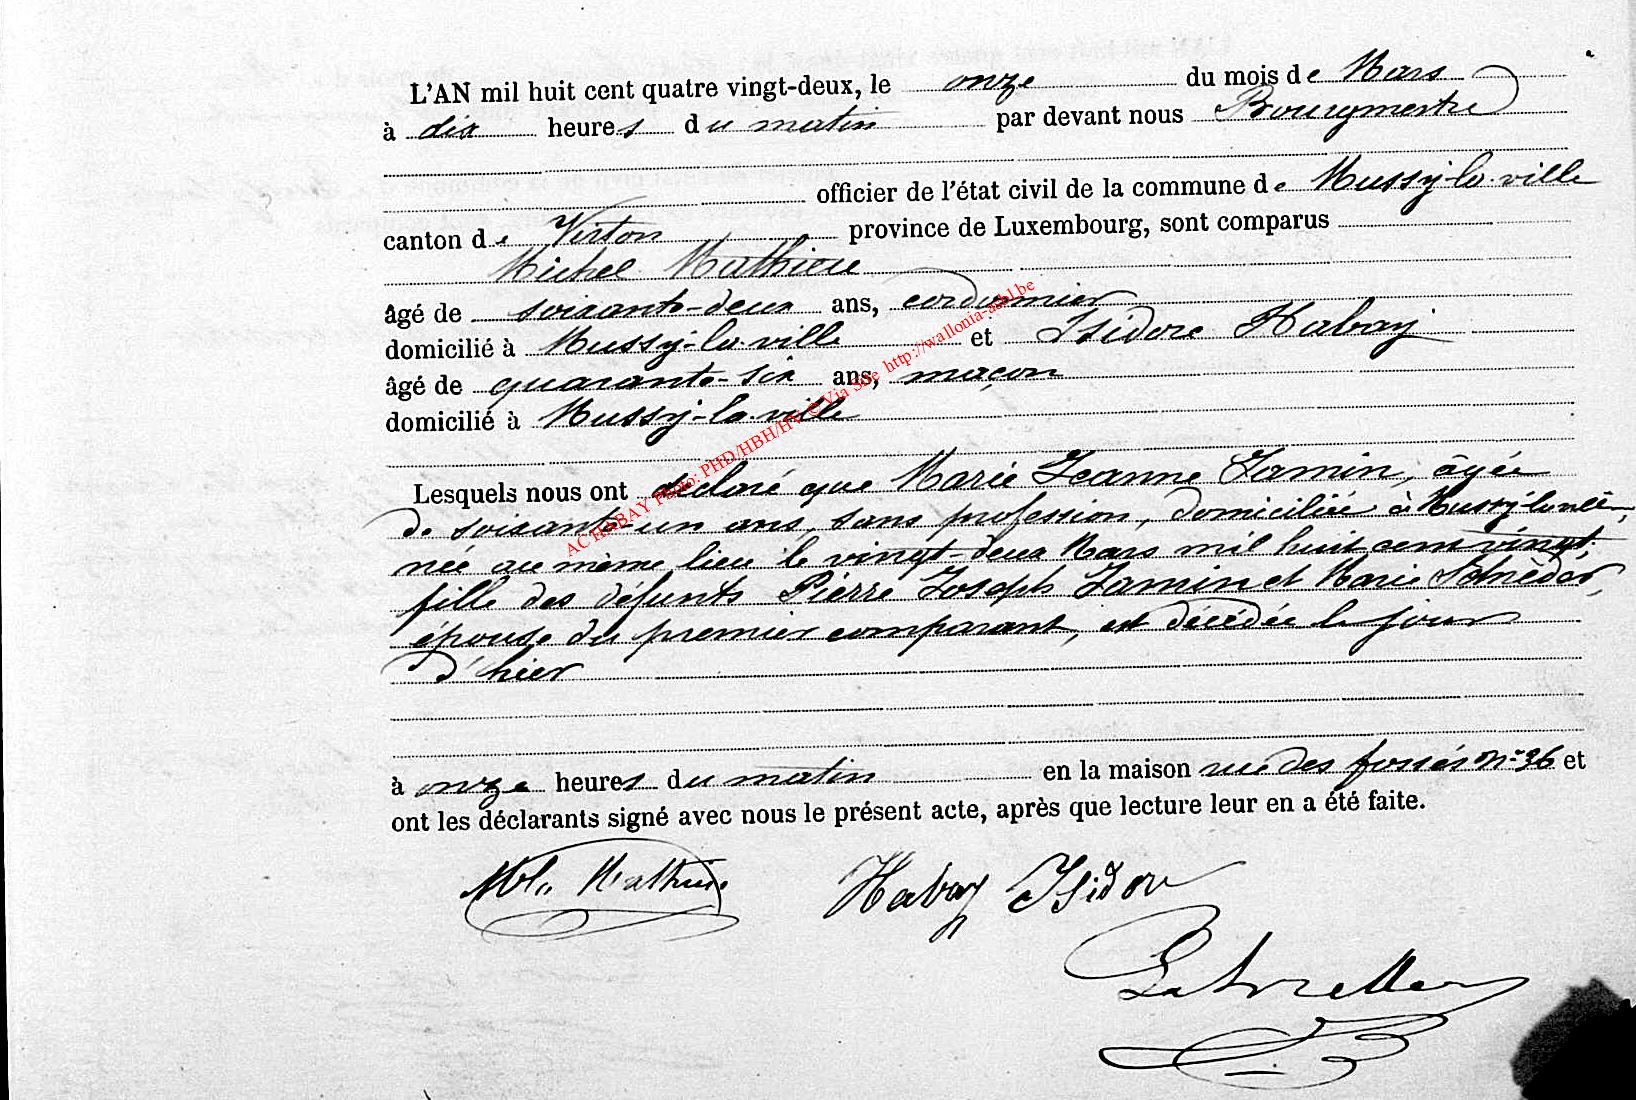 L'AN mil huit cent quatre vingt-deux, le onze du mois de Mars
à dix heures du matin par devant nous Bourgmestre
officier de l'état civil de la commune de Mussy-la-ville
canton de Virton province de Luxembourg, sont comparus
Michel Mathieu
âgé de soixante-deux ans, cordonnier
domicilié à Mussy-la-ville et Isidore Habay
âgé de quarante-six ans, maçon
domicilié à Mussy-la-ville
Lesquels nous ont déclaré que Marie Jeanne Jamin, âgée
de soixante-un ans, sans profession, domiciliée à Mussy-la-ville,
née au même lieu le vingt-deux Mars mil huit cent vingt,
fille des défunts Pierre Joseph Jamin et Marie Schnèder,
épouse du premier comparant, est décédée le jour
d'hier
à onze heures du matin en la maison rue des fossés N° 36 et
ont les déclarants signé avec nous le présent acte, après que lecture leur en a été faite.
Mathieu Habay Isidor
AC HABAY Photo: PHD/HBH/HV © Via Site http://wallonia-asbl.be